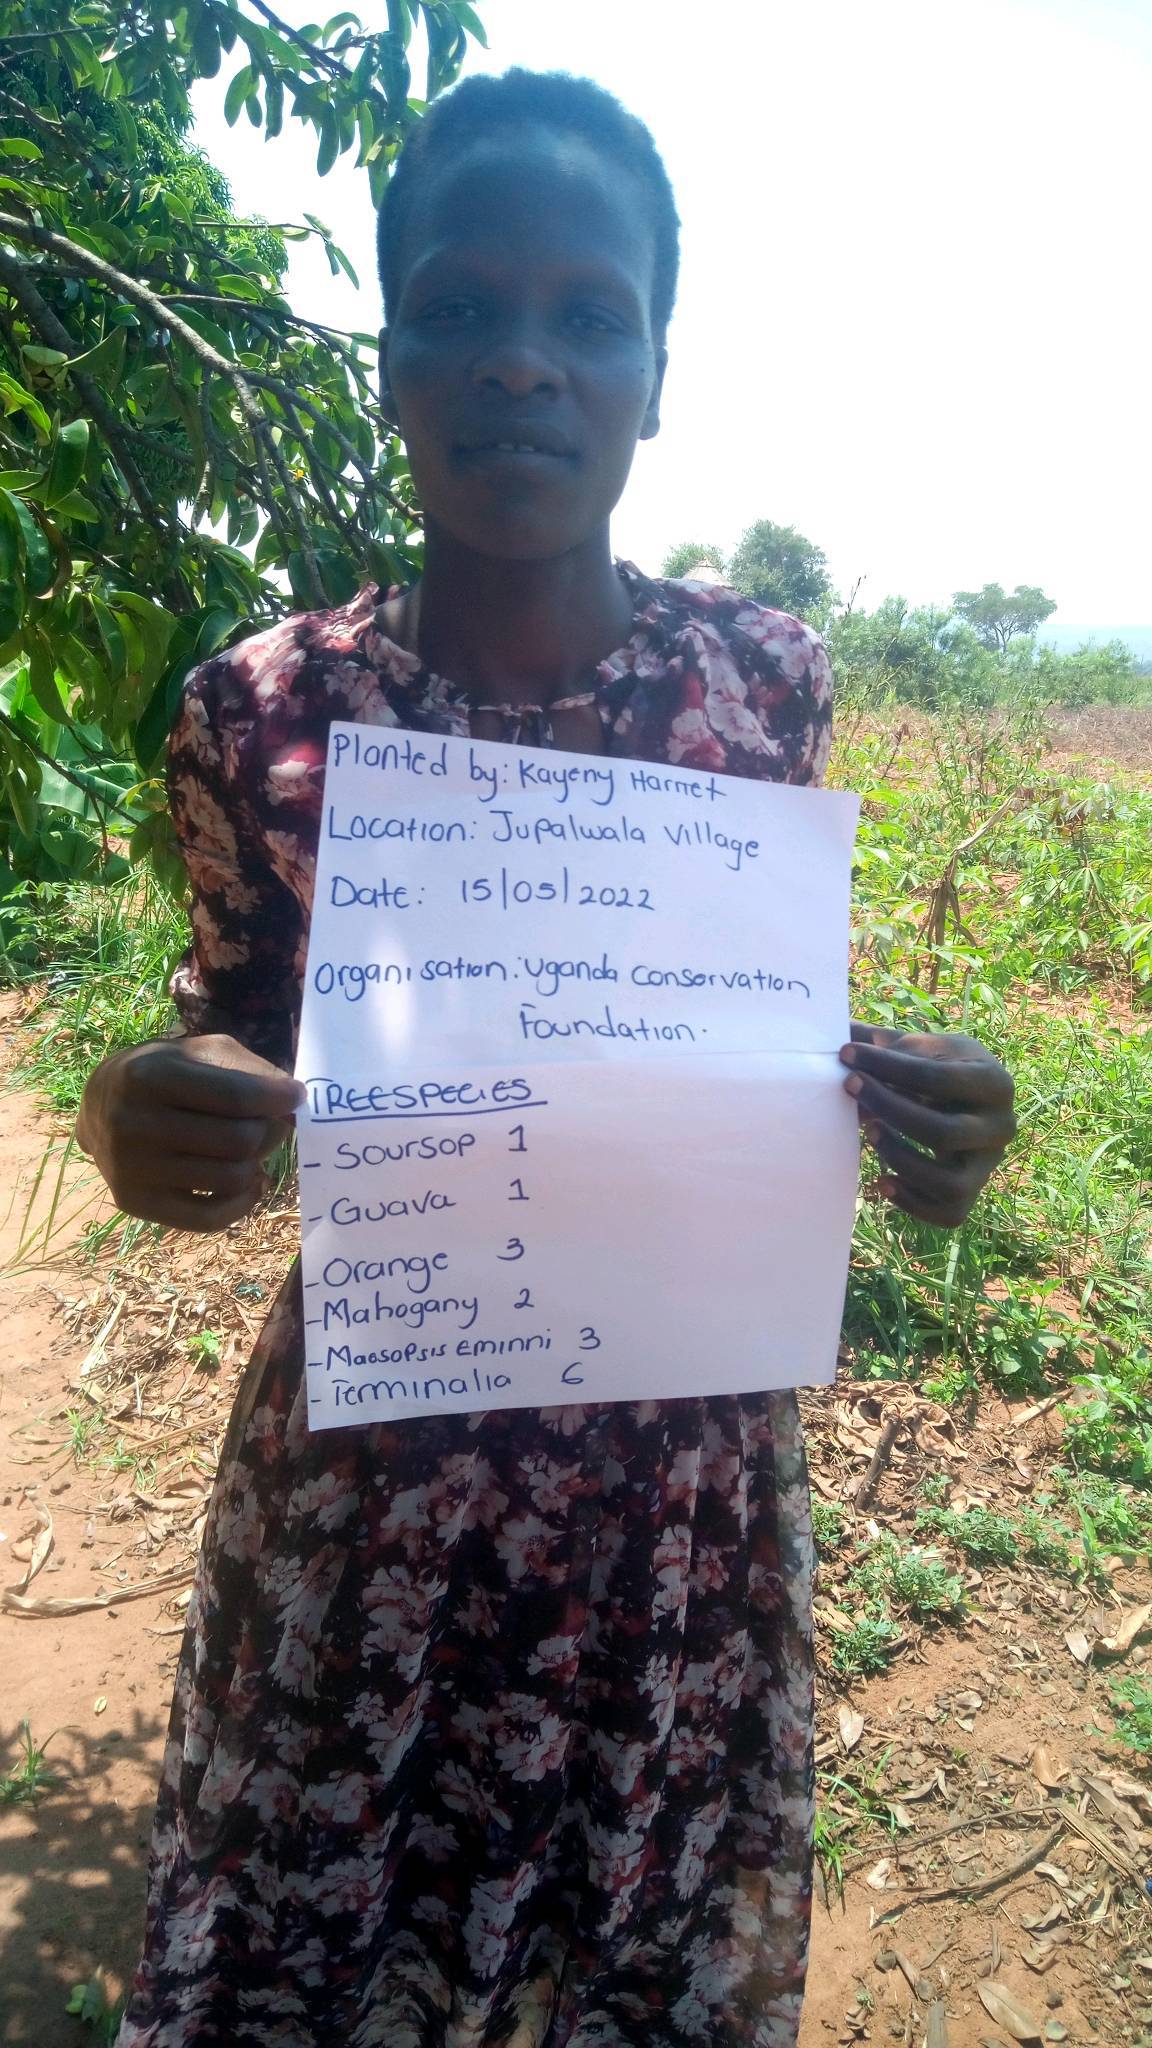 Planted by: Kayeny Harriet
Location: Jupalwala Village
Date: 15/05/2022
Organisation: Uganda Conservation
Foundation.
TREESPECIES
- Soursop 1
- Guava 1
- Orange 3
- Mahogany 2
- Maosopsis Eminni 3
- Terminalia 6